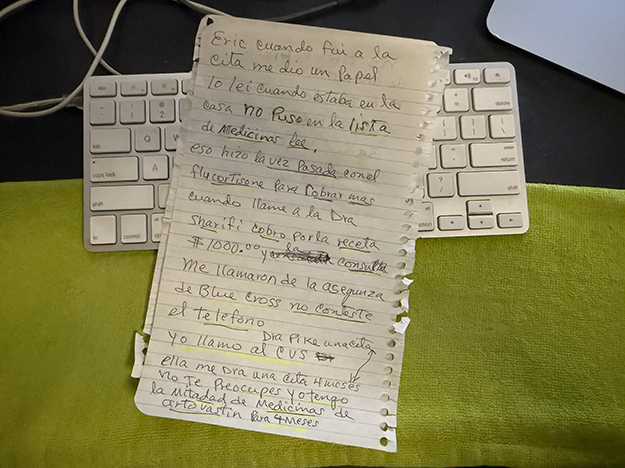 Eric cuando fui a la
cita me dio un Papel
lo lei cuando estaba en la
casa no Puso en la lista
de Medicinas lee,
eso hizo la vez Pasada con el
flycortisone para Cobrar mas
cuando llame a la Dra
sharifi cobro por la receta
$1000.00 y la consulta
Me llamaron de la asegunza
de Blue Cross no conteste
el telefono
Dra Pike una cita
Yo llamo al CVS
ella me Dra una cita 4 meses
no Te Preocupes Yo tengo
la Mitadad de Medicinas de
artovastin Para 4 Meses
caps lock
shift
fn
control
option
tab
delete
return
shift
option